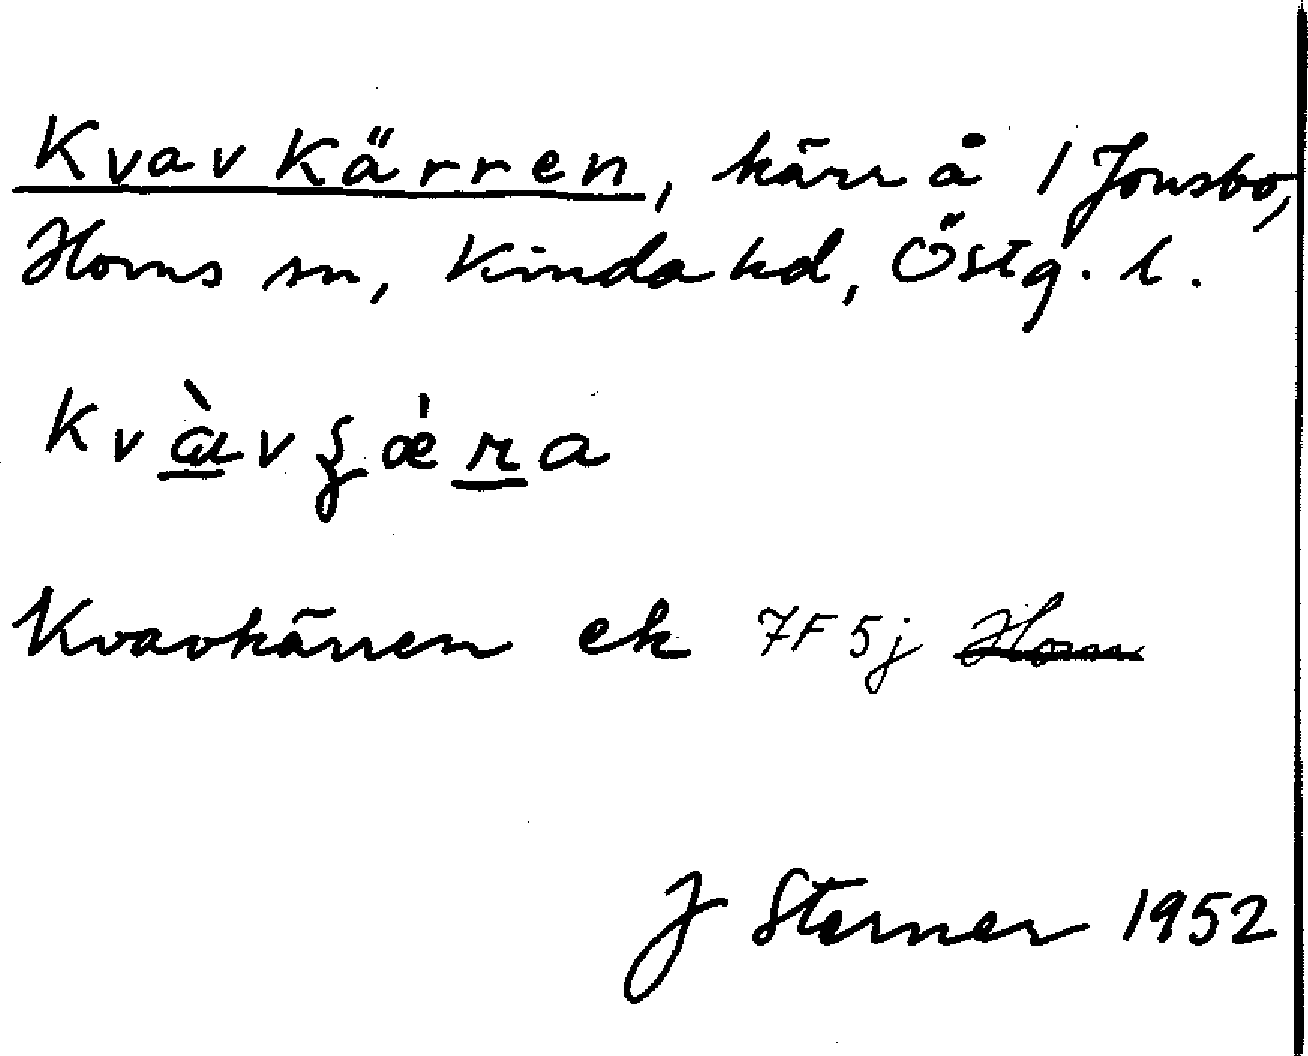 Kvavkärren, kärr å 1 Jonsbo,
Horns sn, Kinda hd, Östg. l.
kvàvʂǽra
Kvavkärren ek 7F5j Horn
J Sterner 1952